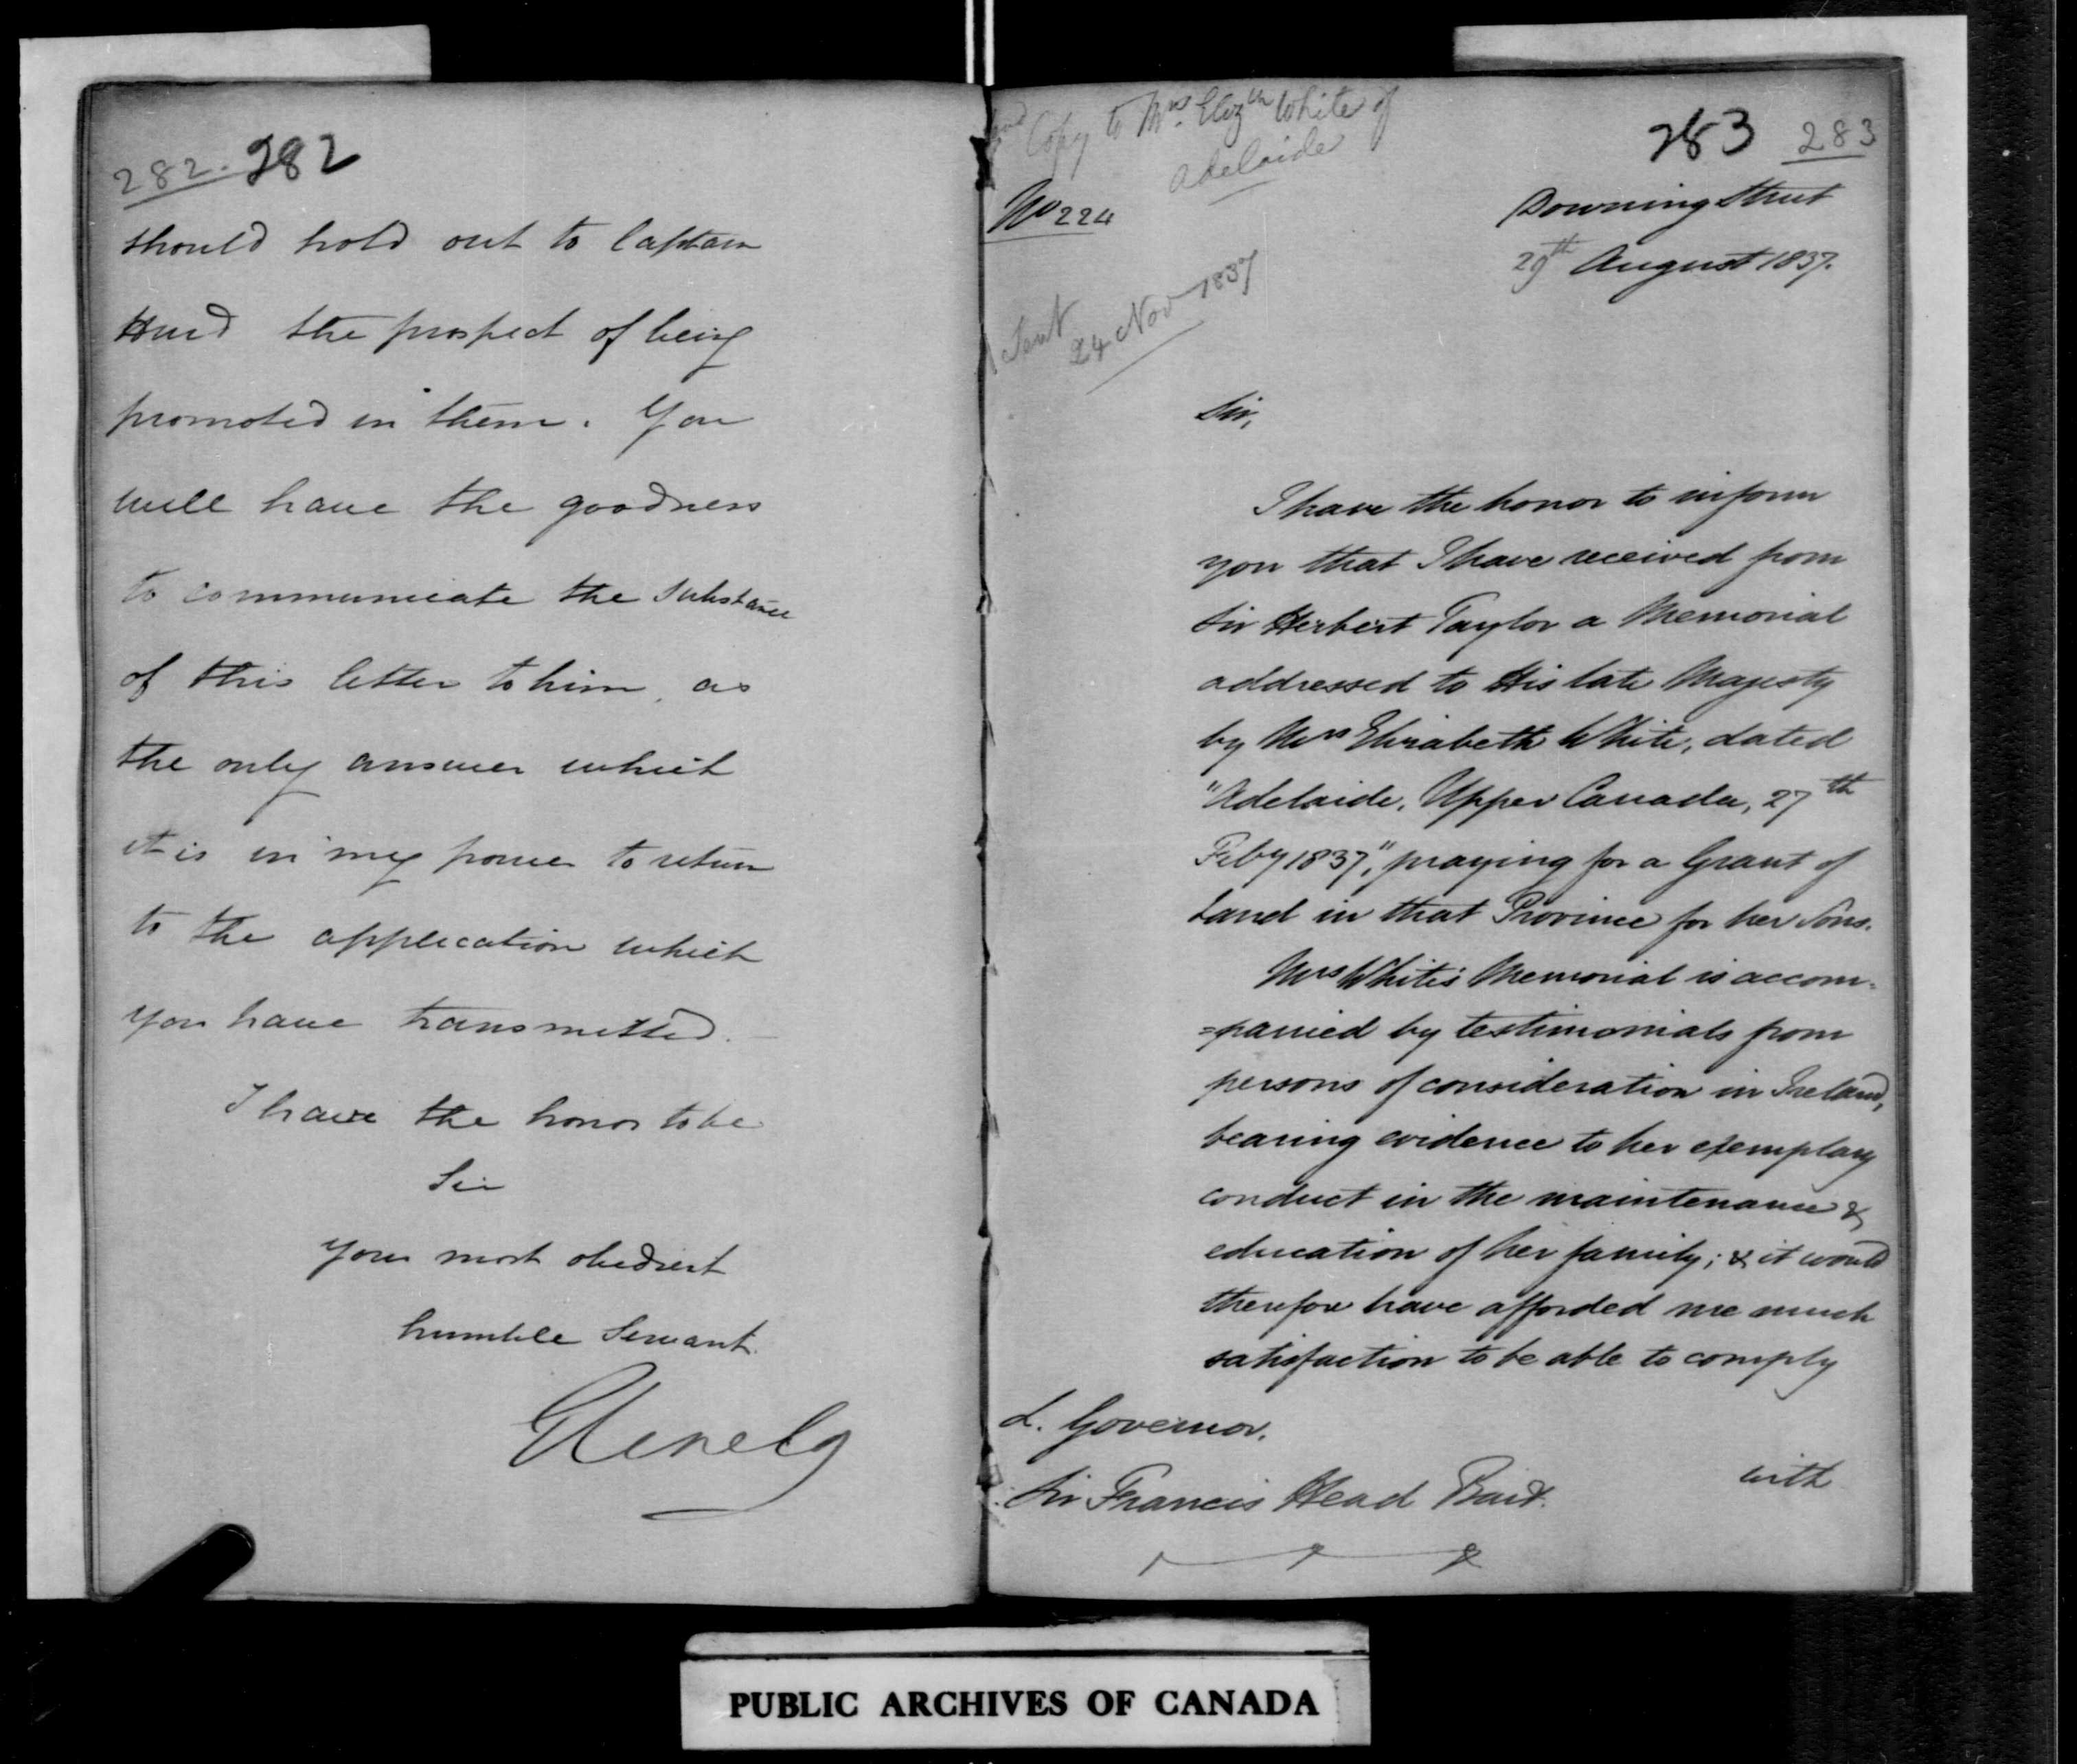 282. 282
should hold out to Captain
Hurd the prospect of being
promoted in them. You
will have the goodness
to communicate the substance
of this letter to him, as
the only answer which
it is in my power to return
to the application which
you have transmitted.
I have the honor to be
Sir
Your most obedient
humble Servant.
Glenelg
Copy to Mrs. Elizth White of
Adelaide
283 283
No 224
Downing Street
29th August 1837.
Sent
24 Nov 1837
Sir,
I have the honor to inform
you that I have received from
Sir Herbert Taylor a Memorial
addressed to His late Majesty
by Mrs Elizabeth White, dated
"Adelaide, Upper Canada, 27th
Feby 1837," praying for a Grant of
Land in that Province for her Sons.
Mrs White's Memorial is accom=
=panied by testimonials from
persons of consideration in Ireland,
bearing evidence to her exemplary
conduct in the maintenance &
education of her family; & it would
therefore have afforded me much
satisfaction to be able to comply
L. Governor.
Sir Francis Head Bart.
with
PUBLIC ARCHIVES OF CANADA